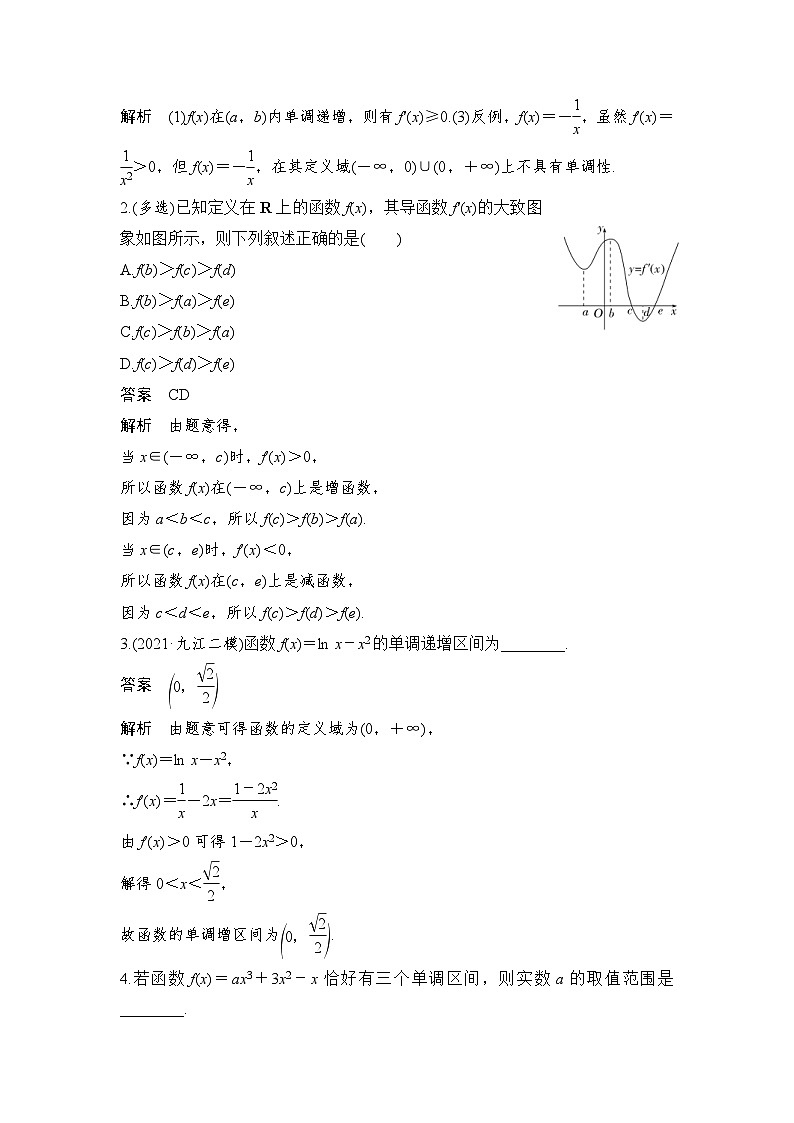 解析　(1)f(x)在(a，b)内单调递增，则有f′(x)≥0.(3)反例，f(x)＝－1/x，虽然f′(x)＝
1/x²＞0，但f(x)＝－1/x，在其定义域(－∞，0)∪(0，＋∞)上不具有单调性.
2.(多选)已知定义在R上的函数f(x)，其导函数f′(x)的大致图
象如图所示，则下列叙述正确的是(　　)
A.f(b)＞f(c)＞f(d)
B.f(b)＞f(a)＞f(e)
C.f(c)＞f(b)＞f(a)
D.f(c)＞f(d)＞f(e)
y
y=f′(x)
a O b c d e x
答案　CD
解析　由题意得，
当x∈(－∞，c)时，f′(x)＞0，
所以函数f(x)在(－∞，c)上是增函数，
因为a＜b＜c，所以f(c)＞f(b)＞f(a).
当x∈(c，e)时，f′(x)＜0，
所以函数f(x)在(c，e)上是减函数，
因为c＜d＜e，所以f(c)＞f(d)＞f(e).
3.(2021·九江二模)函数f(x)＝ln x－x²的单调递增区间为________.
答案　(0，√2/2)
解析　由题意可得函数的定义域为(0，＋∞)，
∵f(x)＝ln x－x²，
∴f′(x)＝1/x－2x＝(1－2x²)/x.
由f′(x)＞0可得1－2x²＞0，
解得0＜x＜√2/2，
故函数的单调增区间为(0，√2/2).
4.若函数f(x)＝ax³＋3x²－x恰好有三个单调区间，则实数a的取值范围是
________.